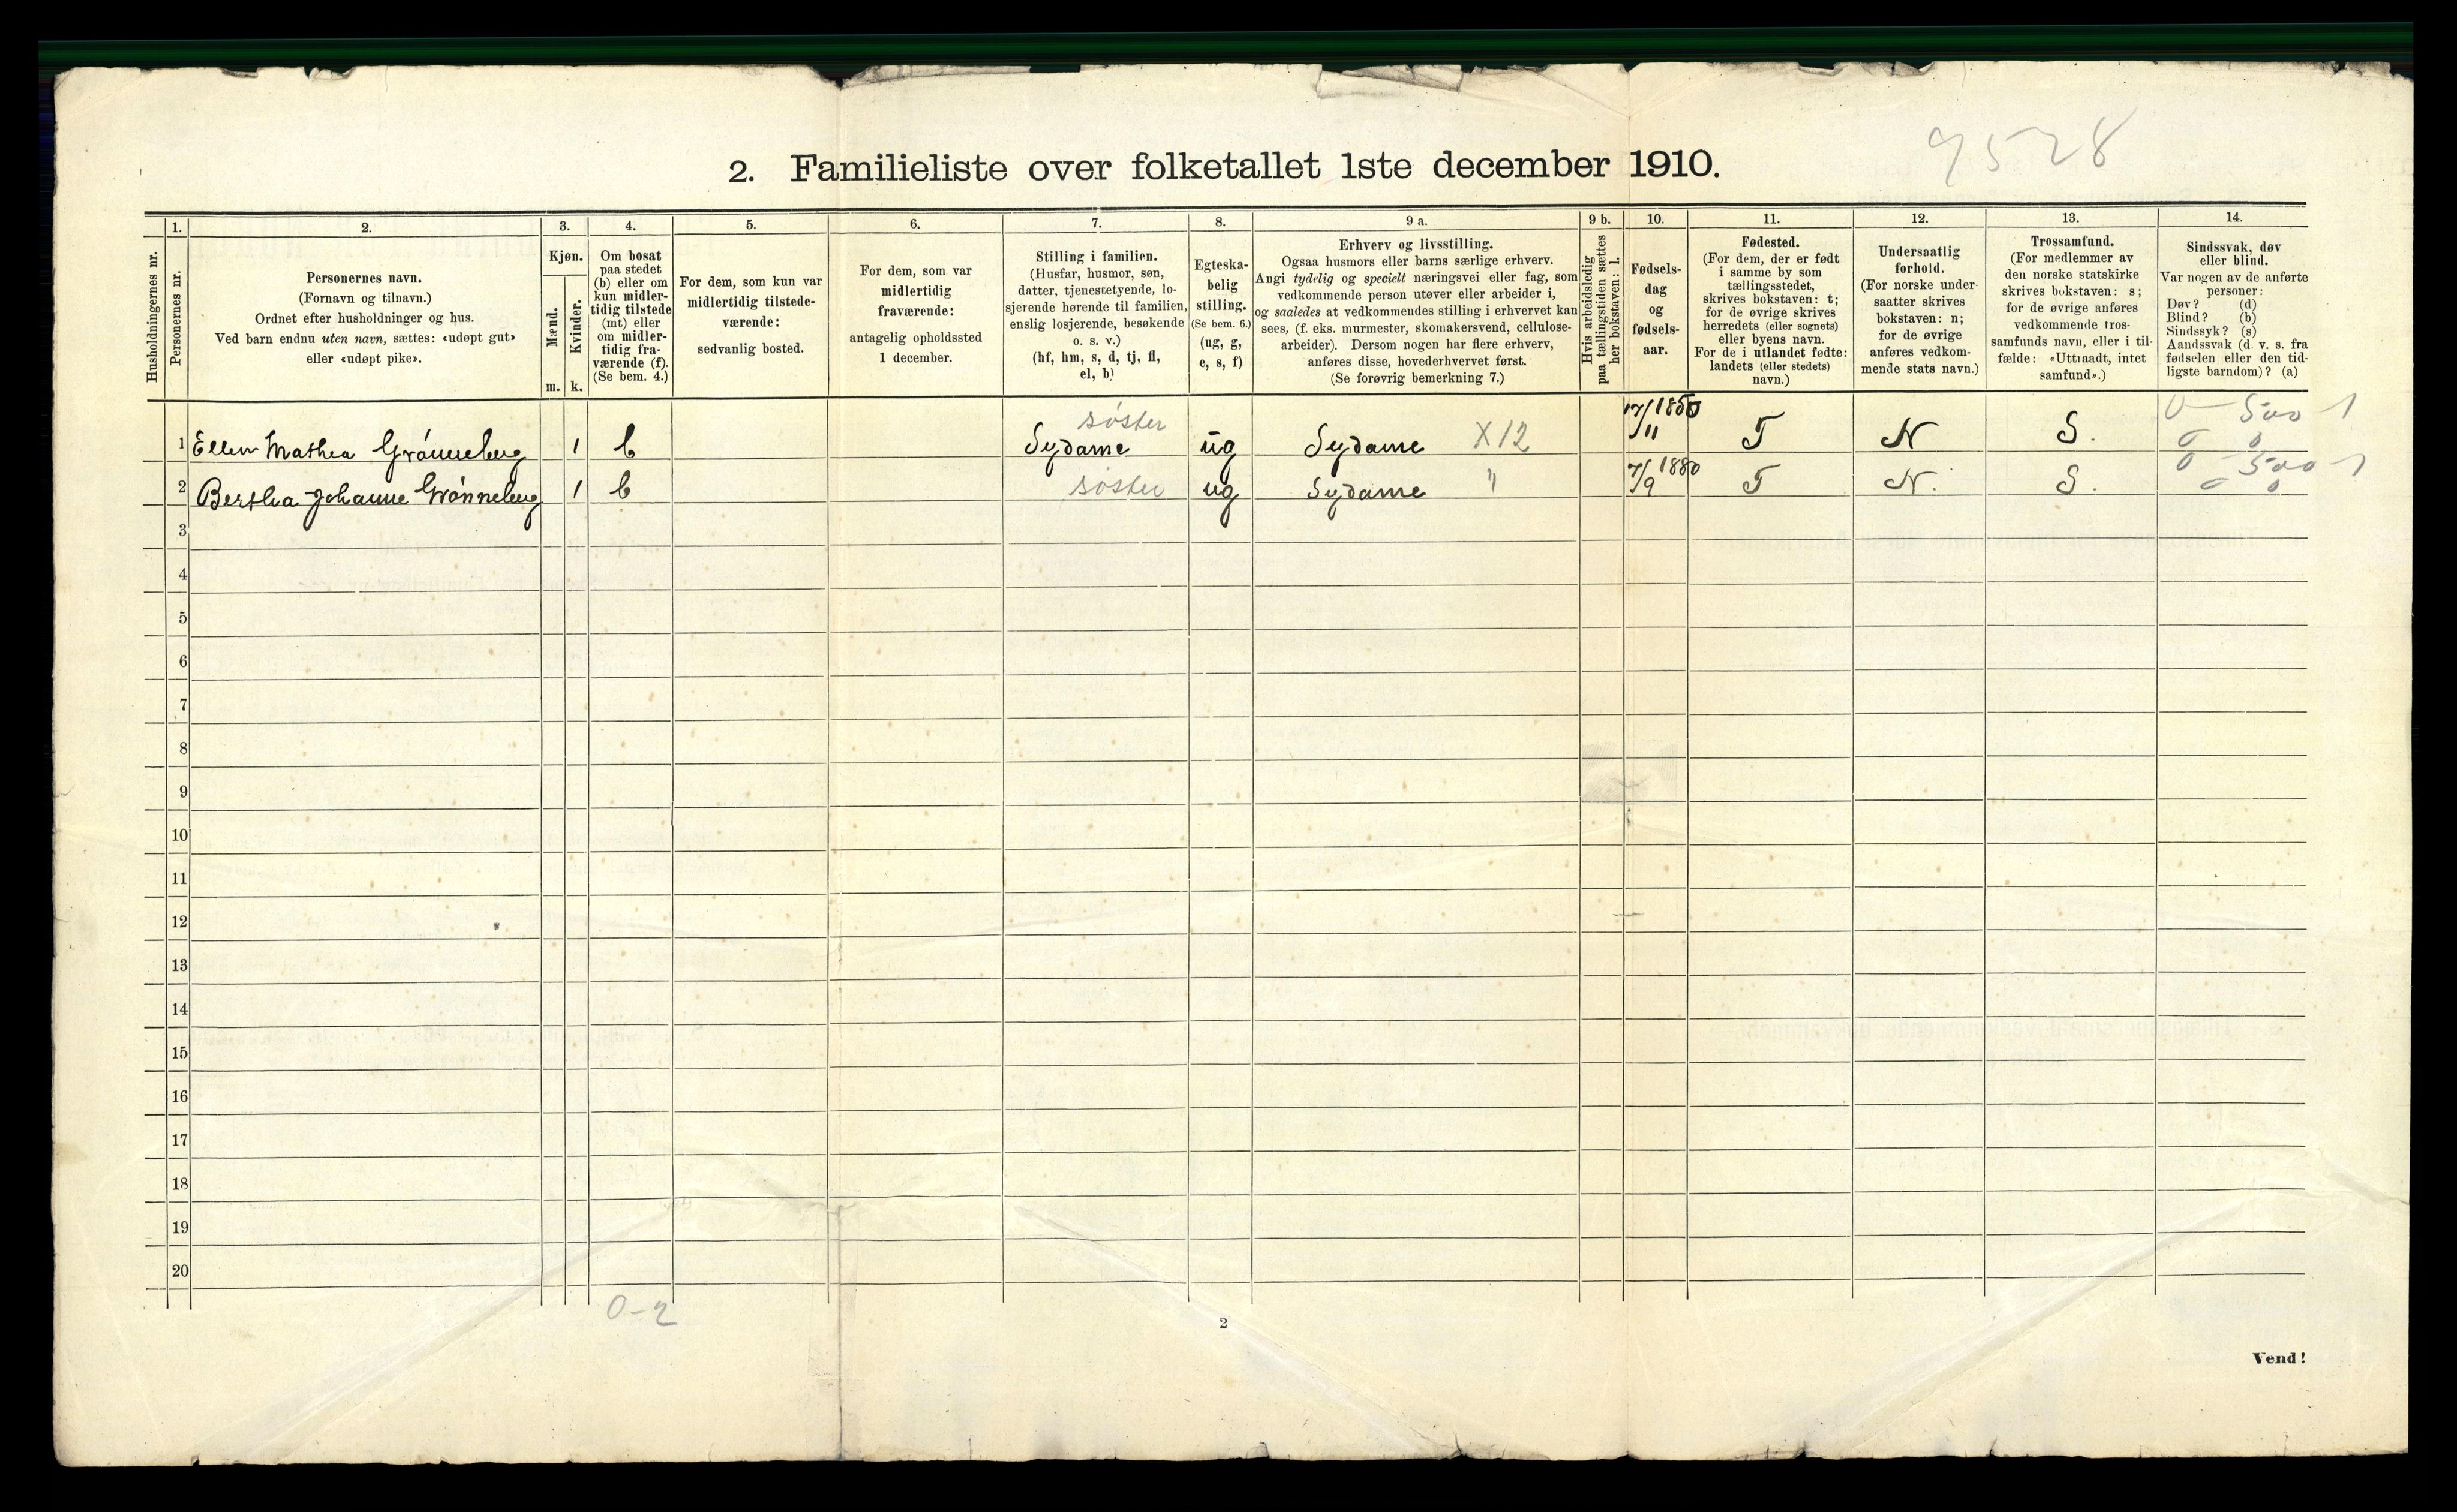 9528
2. Familieliste over folketallet 1ste december 1910.
1. 2. 3. 4. 5. 6. 7. 8. 9 a. 9 b. 10. 11. 12. 13. 14.
Husholdningernes nr.
Personernes nr.
Personernes navn.
(Fornavn og tilnavn.)
Ordnet efter husholdninger og hus.
Ved barn endnu uten navn, sættes: «udøpt gut»
eller «udøpt pike».
Kjøn.
Mænd.
m.
Kvinder.
k.
Om bosat
paa stedet
(b) eller om
kun midler-
tidig tilstede
(mt) eller
om midler-
tidig fra-
værende (f).
(Se bem. 4.)
For dem, som kun var
midlertidig tilstede-
værende:
sedvanlig bosted.
For dem, som var
midlertidig
fraværende:
antagelig opholdssted
1 december.
Stilling i familien.
(Husfar, husmor, søn,
datter, tjenestetyende, lo-
sjerende hørende til familien,
enslig losjerende, besøkende
o. s. v.)
(hf, hm, s, d, tj, fl,
el, b)
Egteska-
belig
stilling.
(Se bem. 6.)
(ug, g,
e, s, f)
Erhverv og livsstilling.
Ogsaa husmors eller barns særlige erhverv.
Angi tydelig og specielt næringsvei eller fag, som
vedkommende person utøver eller arbeider i,
og saaledes at vedkommendes stilling i erhvervet kan
sees, (f. eks. murmester, skomakersvend, cellulose-
arbeider). Dersom nogen har flere erhverv,
anføres disse, hovederhvervet først.
(Se forøvrig bemerkning 7.)
Hvis arbeidsledig
paa tællingstiden sættes
her bokstaven: l.
Fødsels-
dag
og
fødsels-
aar.
Fødested.
(For dem, der er født
i samme by som
tællingsstedet,
skrives bokstaven: t;
for de øvrige skrives
herredets (eller sognets)
eller byens navn.
For de i utlandet fødte:
landets (eller stedets)
navn.)
Undersaatlig
forhold.
(For norske under-
saatter skrives
bokstaven: n;
for de øvrige
anføres vedkom-
mende stats navn.)
Trossamfund.
(For medlemmer av
den norske statskirke
skrives bokstaven: s;
for de øvrige anføres
vedkommende tros-
samfunds navn, eller i til-
fælde: «Uttraadt, intet
samfund».)
Sindssvak, døv
eller blind.
Var nogen av de anførte
personer:
Døv? (d)
Blind? (b)
Sindssyk? (s)
Aandssvak (d. v. s. fra
fødselen eller den tid-
ligste barndom)? (a)
søster 0 - 500 - 1
1 Ellen Mathea Grønneberg 1 b Sydame ug Sydame X12 17/11 T N S. 0 0
0 - 500 - 1
2 Bertha Johanne Grønneberg 1 b søster ug Sydame " 7/9 1880 T N. S. 0 0
3
4
5
6
7
8
9
10
11
12
13
14
15
16
17
18
19
20
0-2
2
Vend!